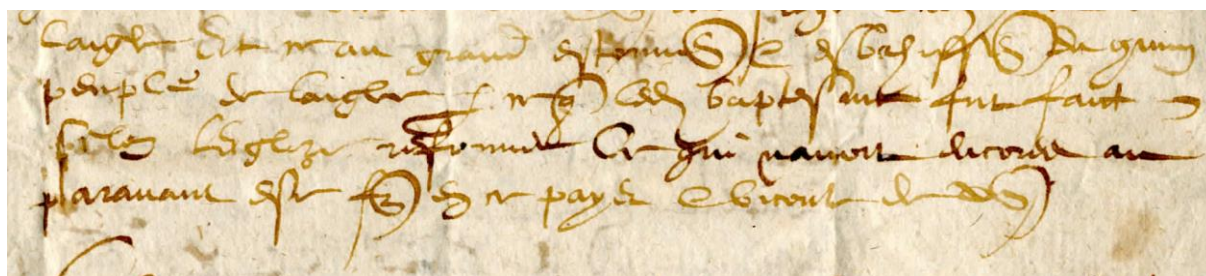 laigle Et ce au grand estonnem(en)t & esbahissem(en)t du commun
peuple de laigle p(ar) ce q(ue) led(it) baptesme fut faict
selon leglize refformee Ce qui navoit encores au
paravant este f(ai)ct en ce pays & viconte de